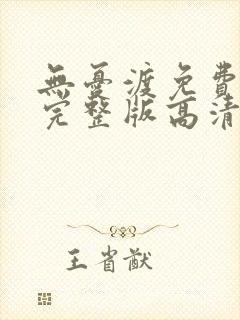 無憂渡免費
完整版高清
王省猷